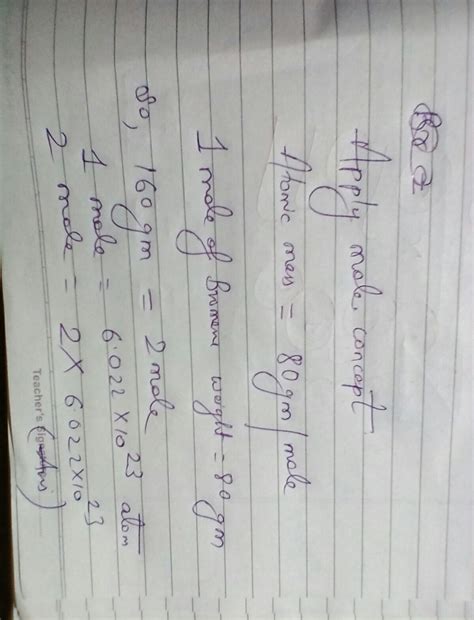 Apply mole concept
Atomic mass = 80 gm/mole
1 mole of Bromine weight = 80 gm
So, 160 gm = 2 mole
1 mole = 6.022 × 10²³ atom
2 mole = 2 × 6.022 × 10²³
Teacher's